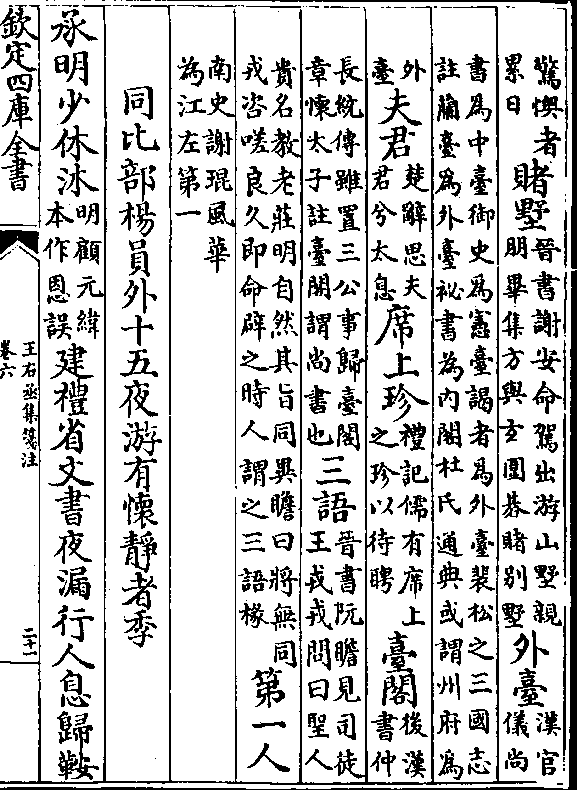 驚懊者
累日
賭墅
晉書謝安命駕出游山墅親
朋畢集方與玄圍碁賭別墅
外臺
漢官
儀尚
書為中臺御史為憲臺謁者為外臺裴松之三國志
註蘭臺為外臺祕書為内閣杜氏通典或謂州府為
外
臺
夫君
楚辭思夫
君兮太息
席上珍
禮記儒有席上
之珍以待聘
臺閣
後漢
書仲
長統傳雖置三公事歸臺閣
章懷太子註臺閣謂尚書也
三語
晉書阮瞻見司徒
王戎戎問曰聖人
貴名教老莊明自然其旨同異瞻曰將無同
戎咨嗟良久即命辟之時人謂之三語掾
第一人
南史謝琨風華
為江左第一
同比部楊員外十五夜游有懷靜者季
承明少休沐
明顧元緯
本作恩誤
建禮省文書夜漏行人息歸鞍
欽定四庫全書
王右丞集箋注
卷六
二十一